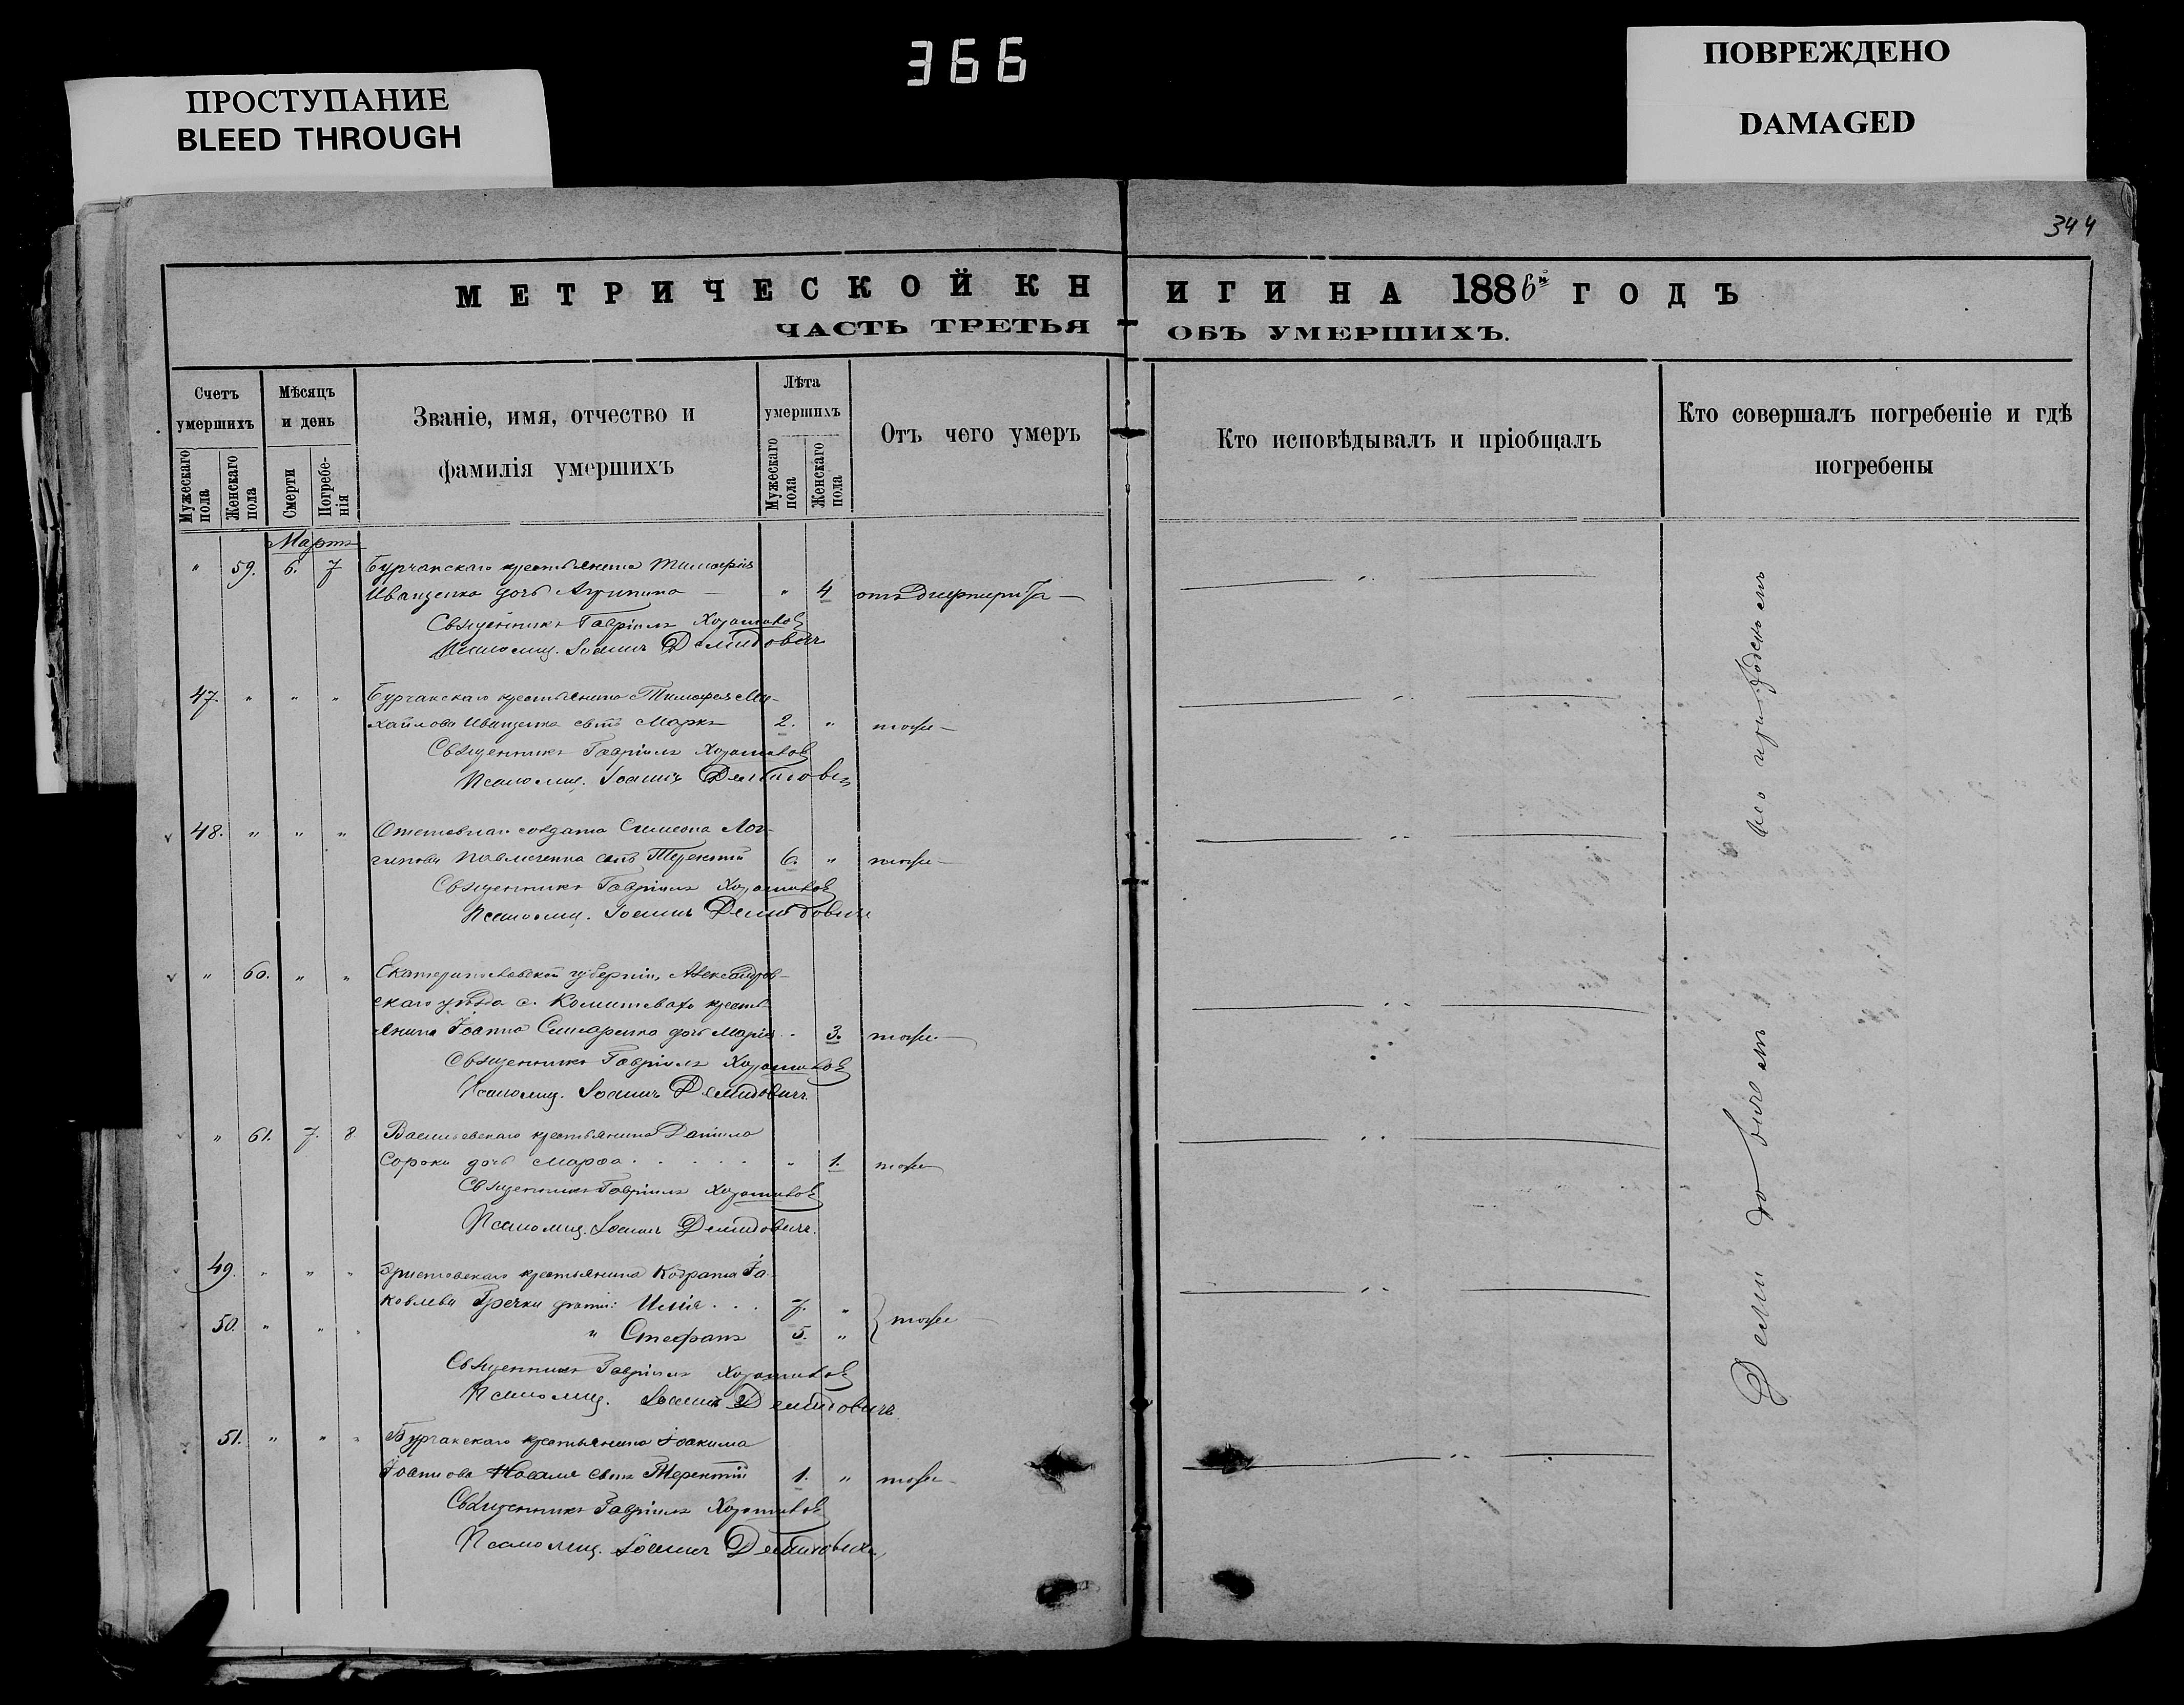 366
ПРОСТУПАНИЕ
BLEED THROUGH
ПОВРЕЖДЕНО
DAMAGED
344
МЕТРИЧЕСКОЙ КНИГИ НА 1886й ГОДЪ
ЧАСТЬ ТРЕТЬЯ ОБЪ УМЕРШИХЪ.
Счетъ умершихъ
Мужескаго пола
Женскаго пола
Мѣсяцъ и день
Смерти
Погребенія
Званіе, имя, отчество и
фамилія умершихъ
Лѣта умершихъ
Мужескаго пола
Женскаго пола
Отъ чего умеръ
Кто исповѣдывалъ и пріобщалъ
Кто совершалъ погребеніе и гдѣ
погребены
Мартъ
" 59. 6. 7 Бурчакскаго крестьянина Тимофія
Иващенка дочь Агрипина " 4 отъ Дифтерита
Священникъ Гавріилъ
Псаломщ. Іоаннъ Демидовичъ
47. " " " Бурчакскаго крестьянина Тимофея Ми-
хайлова Иващенка сынъ Маркъ 2. " тоже
Священникъ Гавріилъ
Псаломщ. Іоаннъ Демидовичъ
48. " " " Отставнаго солдата Симеона Лог-
гинова Павличенка сынъ Терентій 6. " тоже
Священникъ Гавріилъ
Псаломщ. Іоаннъ Демидовичъ
" 60. " " Екатеринославской губерніи, Александров-
скаго уѣзда с. Комишевахи кресть-
янина Іоанна Слисаренка дочь Марія " 3. тоже
Священникъ Гавріилъ
Псаломщ. Іоаннъ Демидовичъ
" 61. 7. 8 Васильевскаго крестьянина Даніила
Сороки дочь Марѳа " 1. тоже
Священникъ Гавріилъ
Псаломщ. Іоаннъ Демидовичъ.
49. " " " крестьянина Кодрата Іа-
ковлева Гречки дѣти: Илія 7. " тоже
50. " " " " Стефанъ 5. "
Священникъ Гавріилъ
Псаломщ. Іоаннъ Демидовичъ
51. " " " Бурчакскаго крестьянина Іоакима
Іоаннова сынъ Терентій 1. " тоже
Священникъ Гавріилъ
Псаломщ. Іоаннъ Демидовичъ